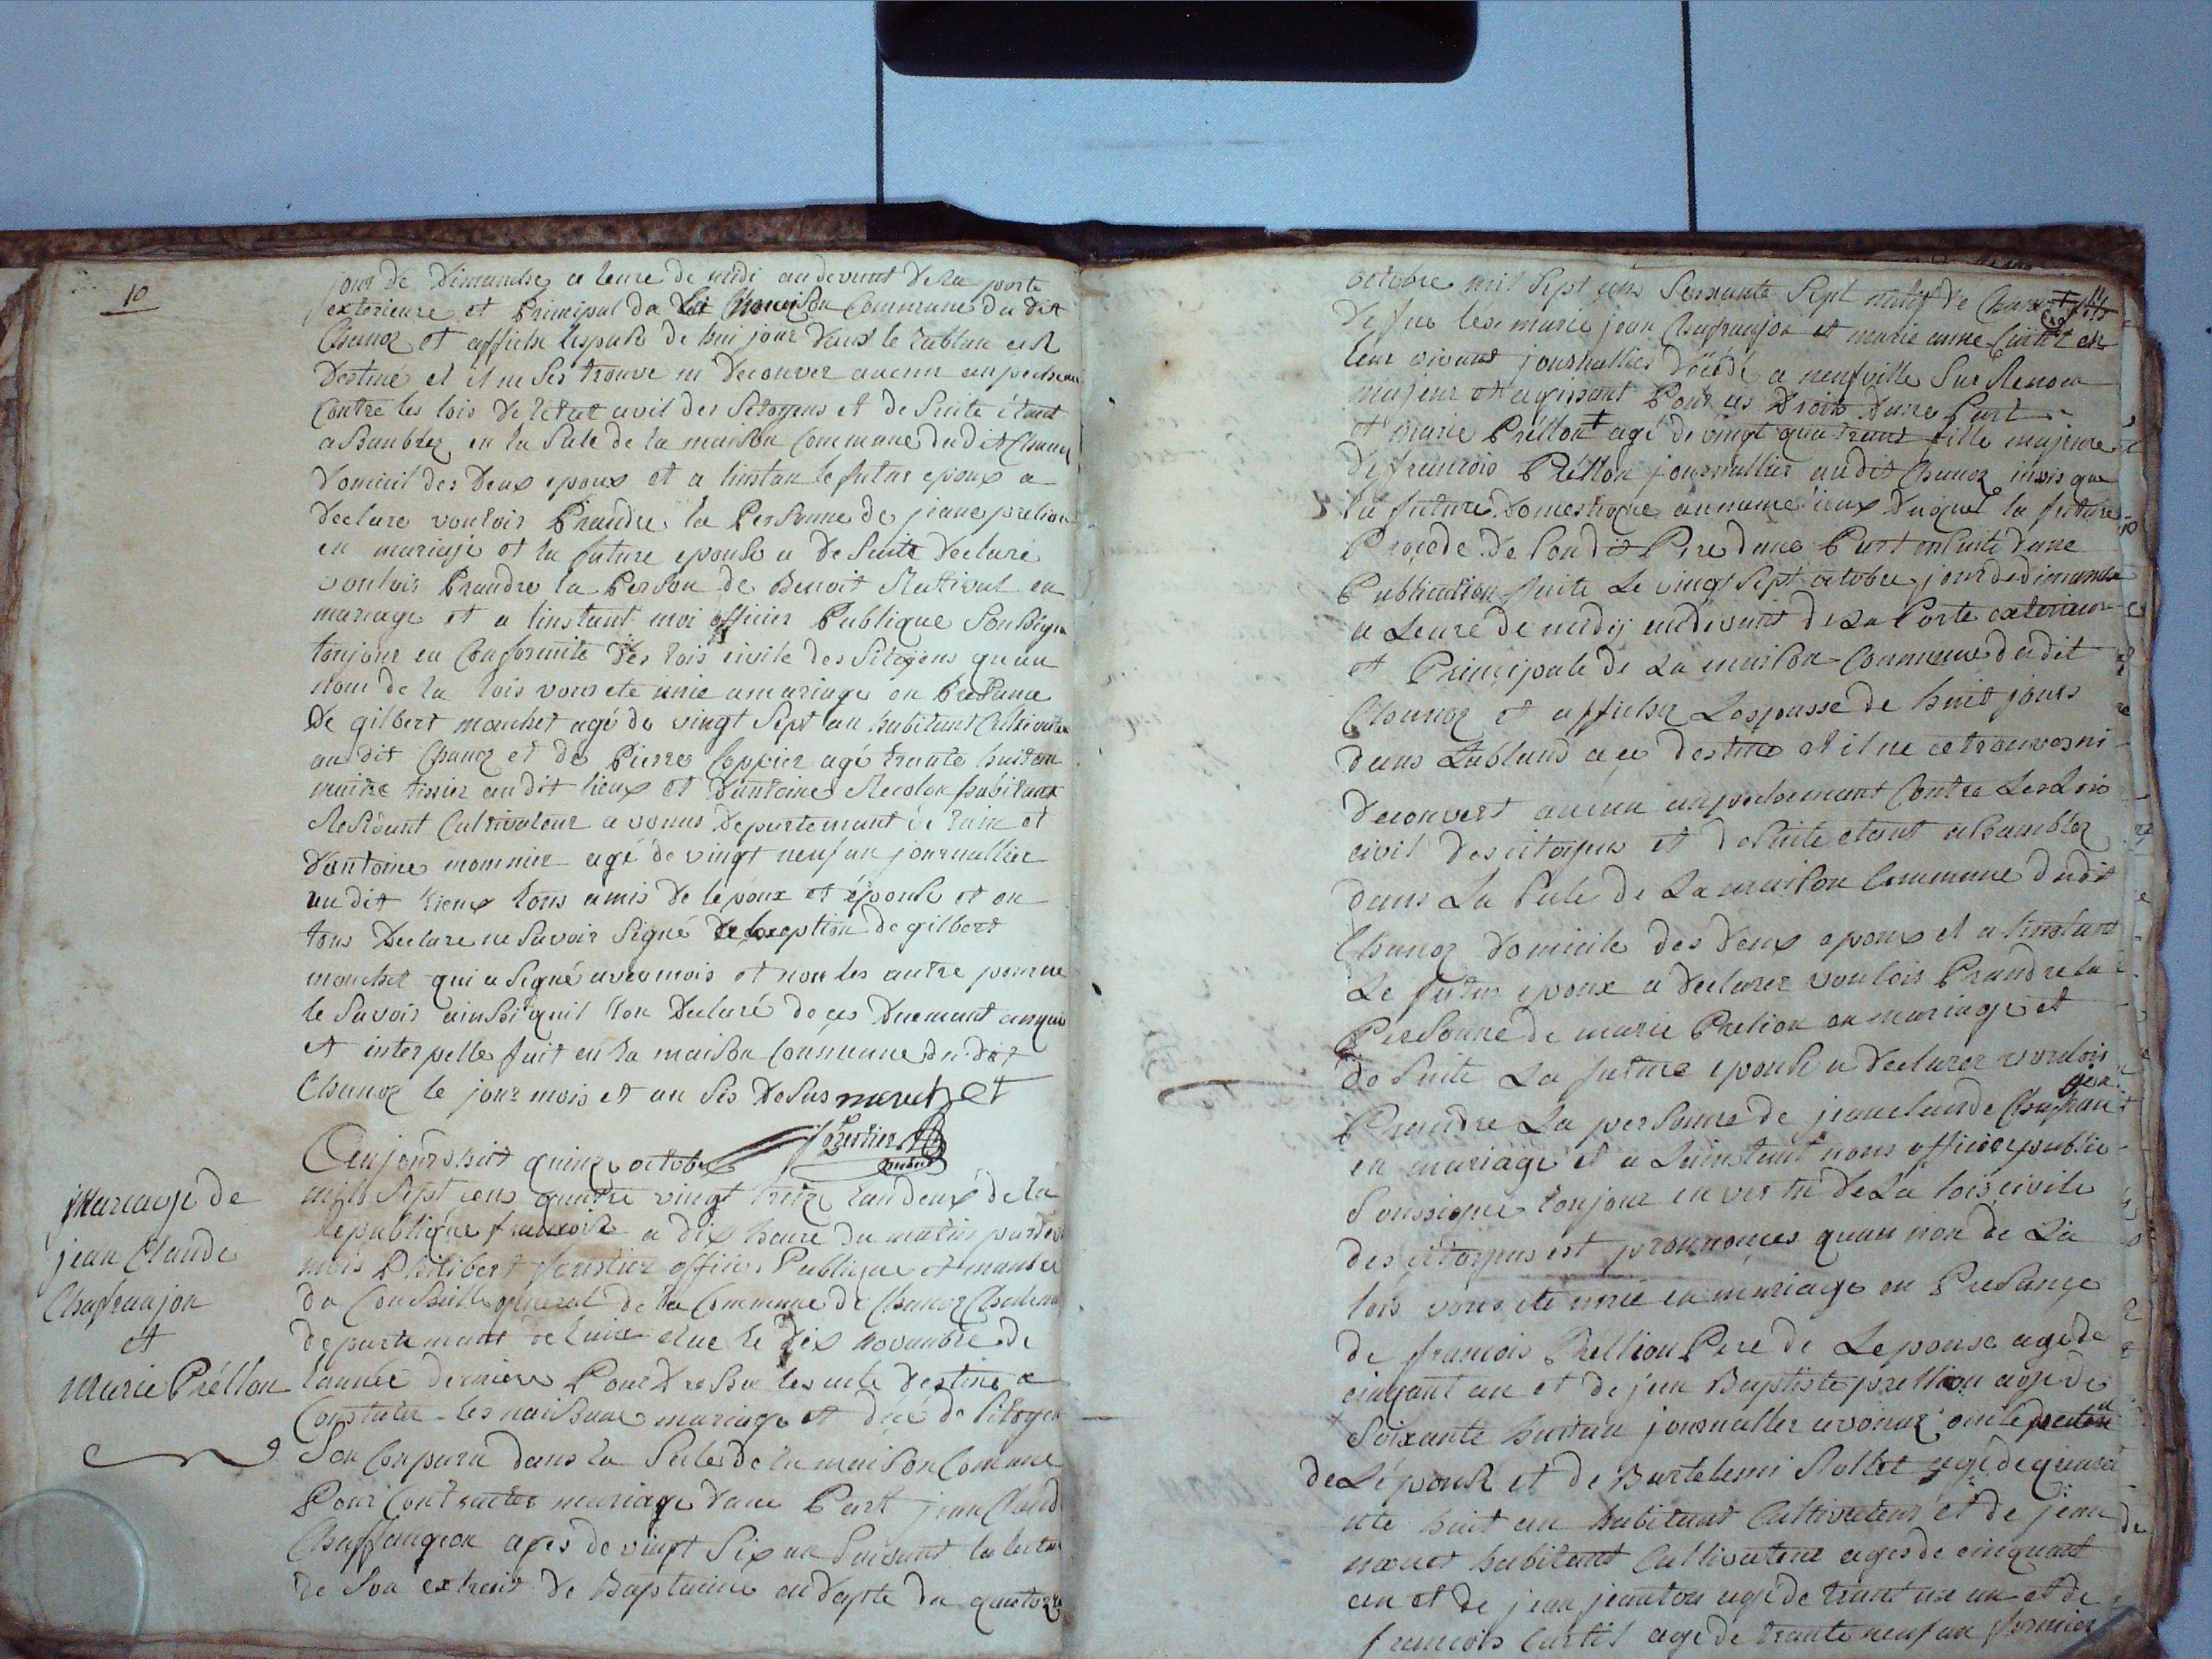 10
jour de dimanche a leure de midi audevant de la porte
exterieure et Principal da La maison Commune du dit
Chanoz et affiche lespase de hui jour dans le tablau a ce
destiné et il ne ses trouve ni decouver aucun
Contre les lois de létat civil des Sitoyens et de Suite étant
assanblez en la Sale de la maison Commune dudit Chanoz
domicil des deux epoux et a linstan le futur epoux a
declare vouloir Prandre la Personne de jeane prelion
en mariaje et la future epouse a de Suite declaré
vouloir Prandre la Person de Benoit en
mariage et a linstant moi officier Publique Sousigné
toujour en Conformité des lois civile des Sitoyens quau
nom de la lois vous ete unie amariage en Presance
De gilbert mouchet agé de vingt Sept an habitant Cultivateur
audit Chanoz et de Pierre Coppier agé trante huit an
maitre tissier audit lieux et dantoine habitant
Residant Cultivateur a vonas departemant de lain et
dantoine monnier agé de vingt neuf an journallier
audit lieux tous amis de lepoux et épouse et on
tous declare ne Savoir Signé de lexeption de gilbert
mouchet qui a Signé avec mois et non les autre pour ne
le Savoir ainsi quil lon declaré de ces duemant anquis
et interpelle fait en la maison Commune du dit
Chanoz le jour mois et an Sis desus mouchet
forestier
Aujourdhuit quinze octobre
Mariage de
jean Claude
Chafranjon
et
Marie Prélion
mils Sept cens quatre vingt treize lan deux de la
Republique francoise a dix heure du matin pardevt
mois Philibert forestier officier Publique et manbre
du Conseille general de la Commune de Chanoz Chatenay
departemant de lain elue le dix novanbre de
lannée derniere Pour dresser les acte destiné a
Constater les naissance mariage et décé de Sitoyen
Son Conparu dans la Sale de la maison Commune
Pour Contracter mariage dune Part jean Claud
Chaffangeon ages de vingt Six an Suivant la lecture
de Son extrait de Baptaime en dapte du quatorze
octobre mil Sept cens Soixante Sept natif de Chanoz fils
de feu les marie jean Chafranjon et marie anne Curtil en
leur vivant journallier décédé a neufville Sur Renon
majeur et agissant Pour ces droits dune Part
et marie Prélion agé de vingt quatrans fille majeure
de francois Prélion journallier audit Chanoz insis que
la future domestique aumeme lieux duquel la future
Procede de Sondit Pere dune Part ensuite dune
Publication faite Le vingt Sept octobre jour de dimanche
a Leure de midy audevant de La Porte exterieur
et Principale de La maison Commune dudit
Chanoz et affichez Lespasse de huit jours
dans Lablaud a ce destine et il ne cetrouves ni
decouvert aucun anpechemant Contre Les Lois
civil des citoyens et de Suite etant assamblez
dans La Sale de La maison Commune dudit
Chanoz domicile des deux epoux et a linstant
Le futur epoux a declarer vouloir Prandre la
Personne de marie Prelion en mariage et
de Suite La future epouse a declarer vouloir
Prandre La personne de jeanclaude Chafran
jon
en mariage et a Lainstant nous officier public
Soussigne toujour en vertu de La lois civile
des citoyens est prononces quau non de La
lois vous ete unie en mariage en Presance
de francois Prellion Pere de Lepouse age de
cinqant an et de jean Baptiste prellion age de
Soixante huit an journallier a vonas oncle paternel
de Lépouse et de Bartelemi Rollet agé de quara
nte huit an habitant Cultivateur et de jean
habitant Cultivateur ages de cinquant
an et de jean jeanton agé de trant un an et de
francois Curtil agé de trante neuf an fermier